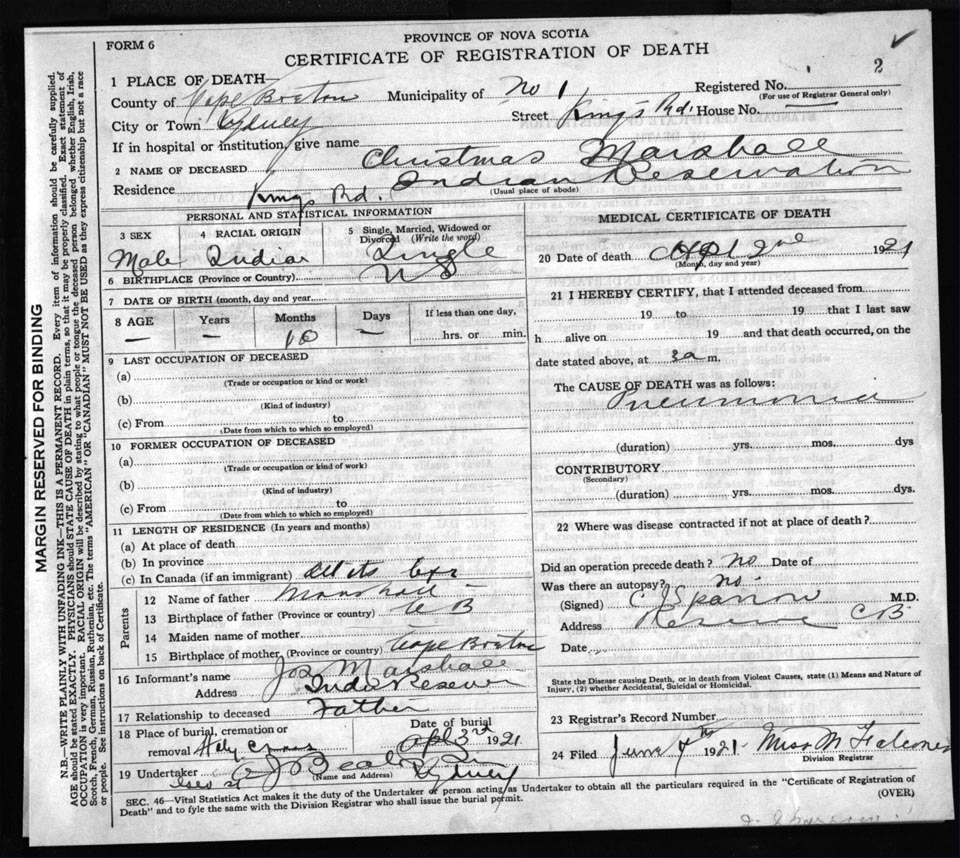 PROVINCE OF NOVA SCOTIA
FORM 6
CERTIFICATE OF REGISTRATION OF DEATH
2
1 PLACE OF DEATH
Registered No.
(For use of Registrar General only)
County of Cape Breton Municipality of No 1
City or Town Sydney Street King's Rd. House No.
If in hospital or institution, give name
2 NAME OF DECEASED Christmas Marshall
Residence Kings Rd. Indian Reservation
(Usual place of abode)
PERSONAL AND STATISTICAL INFORMATION
3 SEX 4 RACIAL ORIGIN 5 Single, Married, Widowed or Divorced (Write the word)
Male Indian Single
6 BIRTHPLACE (Province or Country)
7 DATE OF BIRTH (month, day and year)
8 AGE Years Months Days If less than one day,
— — 10 — hrs. or min.
9 LAST OCCUPATION OF DECEASED
(a)
(Trade or occupation or kind or work)
(b)
(Kind of industry)
(c) From to
(Date from which to which so employed)
10 FORMER OCCUPATION OF DECEASED
(a)
(Trade or occupation or kind of work)
(b)
(Kind of industry)
(c) From to
(Date from which to which so employed)
11 LENGTH OF RESIDENCE (In years and months)
(a) At place of death
(b) In province
(c) In Canada (if an immigrant) all its
Parents
12 Name of father Marshall
13 Birthplace of father (Province or country) C B
14 Maiden name of mother
15 Birthplace of mother (Province or country) Cape Breton
16 Informant's name Jos Marshall
Address Indn Reserve
17 Relationship to deceased Father
18 Place of burial, cremation or Date of burial
removal Holy Cross Apl 3rd 1921
19 Undertaker A J Beaton Sydney
(Name and Address)
MEDICAL CERTIFICATE OF DEATH
20 Date of death Apl 2nd 1921
(Month, day and year)
21 I HEREBY CERTIFY, that I attended deceased from
19 to 19 that I last saw
h alive on 19 and that death occurred, on the
date stated above, at 3 a m.
The CAUSE OF DEATH was as follows:
Pneumonia
(duration) yrs. mos. dys
CONTRIBUTORY
(Secondary)
(duration) yrs. mos. dys.
22 Where was disease contracted if not at place of death?
Did an operation precede death? no Date of
Was there an autopsy? no.
(Signed) C J Sparrow M.D.
Address Reserve C B
Date
State the Disease causing Death, or in death from Violent Causes, state (1) Means and Nature of
Injury, (2) whether Accidental, Suicidal or Homicidal.
23 Registrar's Record Number
24 Filed June 7th 1921 Miss M Falconer
Division Registrar
SEC. 46—Vital Statistics Act makes it the duty of the Undertaker or person acting as Undertaker to obtain all the particulars required in the "Certificate of Registration of
Death" and to fyle the same with the Division Registrar who shall issue the burial permit.
(OVER)
MARGIN RESERVED FOR BINDING
N.B.—WRITE PLAINLY WITH UNFADING INK—THIS IS A PERMANENT RECORD. Every item of information should be carefully supplied.
AGE should be stated EXACTLY. PHYSICIANS should STATE CAUSE OF DEATH in plain terms, so that it may be properly classified. Exact statement of
OCCUPATION is very important. RACIAL ORIGIN will be described by stating to what people or tongue the deceased person belonged whether English, Irish,
Scotch, French, German, Russian, Ruthenian, etc. The terms "AMERICAN" OR "CANADIAN" MUST NOT BE USED as they express citizenship but not a race
or people. See instructions on back of Certificate.